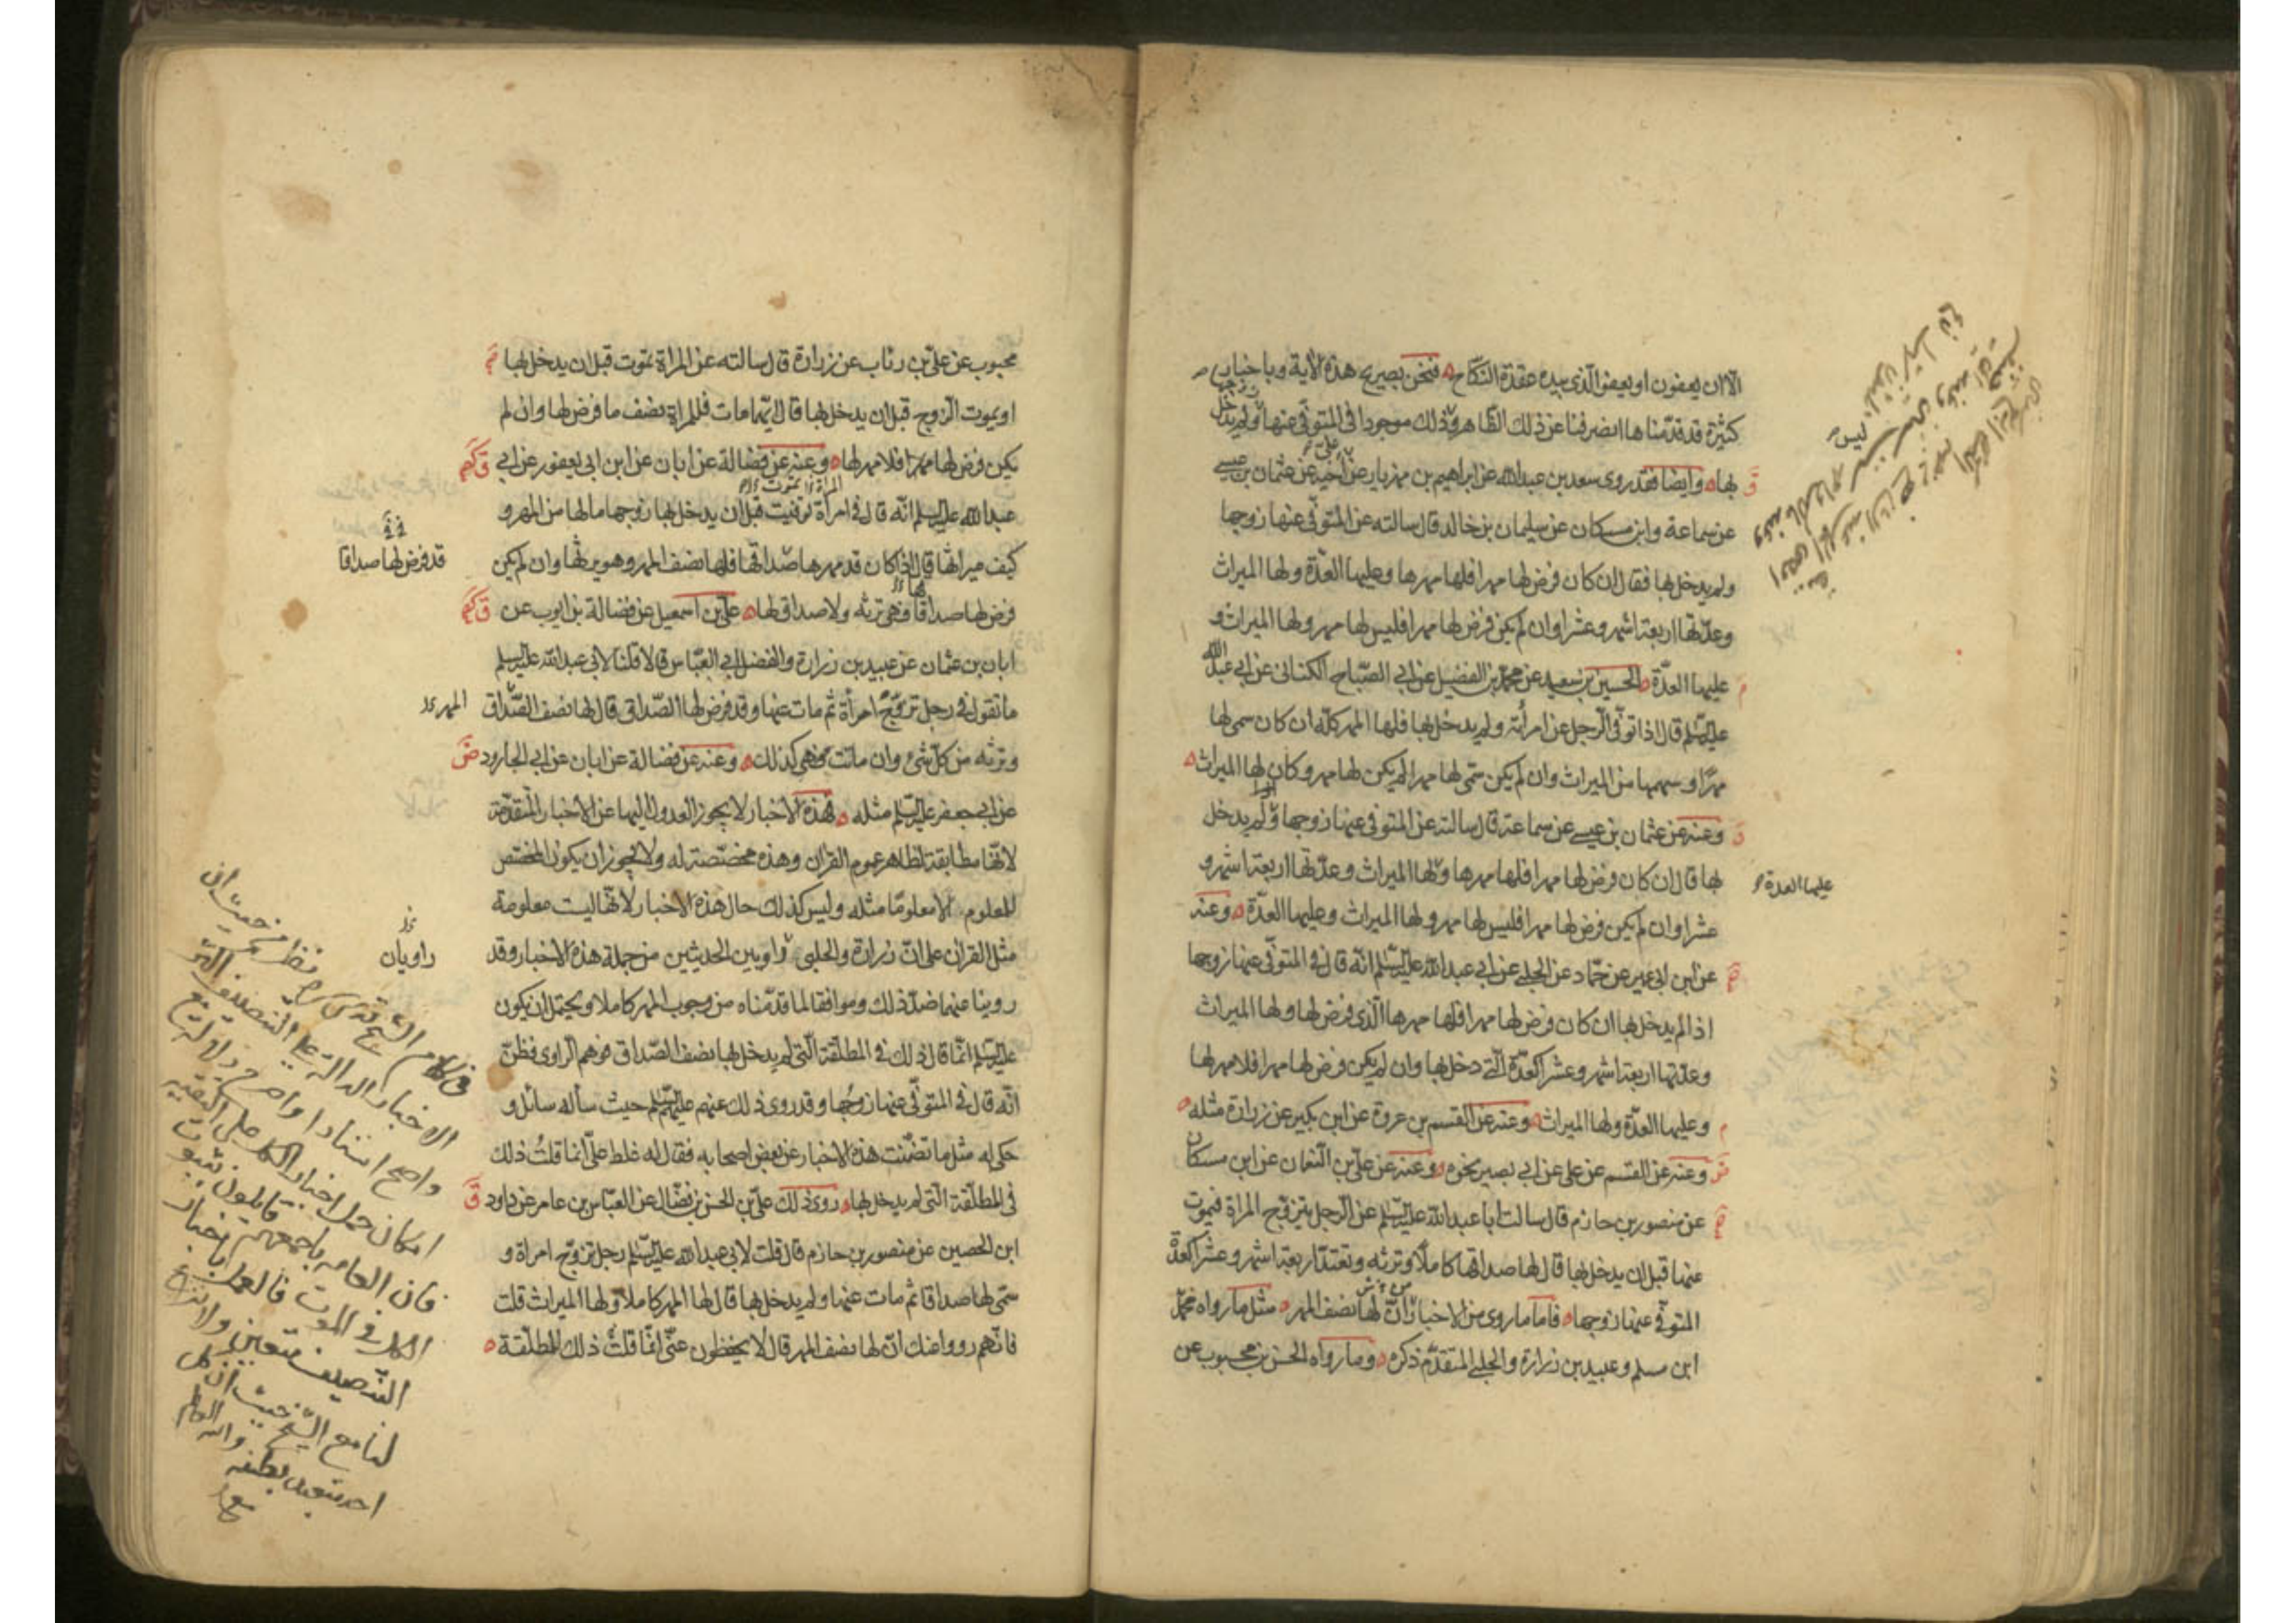 الا ان يعفون او يعفو الذى بيده عقدة النكاح فنحن بصريح هذه الآية وباخبار
كثيرة قد قدمناها انصرفنا عن ذلك الظاهر وذلك موجود فى المتوفى عنها زوجها ولم يدخل
بها وايضا فقد روى سعد بن عبدالله عن ابراهيم بن مهزيار عن اخيه على عن عثمان بن عيسى
عن سماعة وابن مسكان عن سليمان بن خالد قال سالته عن المتوفى عنها زوجها
ولم يدخل بها فقال ان كان فرض لها مهرا فلها مهرها وعليها العدة ولها الميراث
وعدتها اربعة اشهر وعشرا وان لم يكن فرض لها مهرا فليس لها مهر ولها الميراث و
عليها العدة الحسين بن سعيد عن محمد بن الفضيل عن ابى الصباح الكنانى عن ابى عبد الله
عليه السلم قال اذا توفى الرجل عن امرأته ولم يدخل بها فلها المهر كله ان كان سمى لها
مهرا وسهمها من الميراث وان لم يكن سمى لها مهرا لم يكن لها مهر وكان لها الميراث
وعنه عن عثمان بن عيسى عن سماعة قال سالته عن المتوفى عنها زوجها ولم يدخل
بها قال ان كان فرض لها مهرا فلها مهرها ولها الميراث وعدتها اربعة اشهر و
عليها العدة
عشرا وان لم يكن فرض لها مهرا فليس لها مهر ولها الميراث وعليها العدة وعنه
عن ابن ابى عمير عن حماد عن الحلبى عن ابى عبد الله عليه السلم انه قال فى المتوفى عنها زوجها
اذا لم يدخل بها ان كان فرض لها مهرا فلها مهرها الذى فرض لها ولها الميراث
وعدتها اربعة اشهر وعشرا كعدة التى دخل بها وان لم يكن فرض لها مهرا فلا مهر لها
وعليها العدة ولها الميراث وعنه عن القسم بن عروة عن ابن بكير عن زرارة مثله
وعنه عن القسم عن على عن ابى بصير نحوه وعنه عن على بن النعمان عن ابن مسكان
عن منصور بن حازم قال سالت ابا عبد الله عليه السلم عن الرجل يتزوج المراة فيموت
عنها قبل ان يدخل بها قال لها صداقها كاملا وترثه وتعتد اربعة اشهر وعشرا كعدة
المتوفى عنها زوجها فاما ما روى من الاخبار ان لها نصف المهر مثل ما رواه محمد
ابن مسلم وعبيد بن زرارة والحلبى المتقدم ذكره وما رواه الحسن بن محبوب عن
محبوب عن على بن رئاب عن زرارة قال سالته عن المراة تموت قبل ان يدخل بها
او يموت الزوج قبل ان يدخل بها قال ايهما مات فللمراة نصف ما فرض لها وان لم
يكن فرض لها مهرا فلا مهر لها وعنه عن فضالة عن ابان عن ابن ابى يعفور عن ابى
عبد الله عليه السلم انه قال فى امرأة توفيت قبل ان يدخل بها زوجها ما لها من المهر و
كيف ميراثها قال اذا كان قد مهرها صداقها فلها نصف المهر وهو يرثها وان لم يكن
قد فرض لها صداقا
فرض لها صداقا فهى ترثه ولا صداق لها على بن اسمعيل عن فضالة بن ايوب عن
ابان بن عثمان عن عبيد بن زرارة والفضل ابى العباس قالا قلنا لابى عبد الله عليه السلم
ما تقول فى رجل تزوج امرأة ثم مات عنها وقد فرض لها الصداق قال لها نصف الصداق
وترثه من كل شئ وان ماتت فهى كذلك وعنه عن فضالة عن ابان عن ابى الجارود
عن ابى جعفر عليه السلم مثله فهذه الاخبار لا يجوز العدول اليها عن الاخبار المتقدمة
لانها مطابقة لظاهر عموم القرآن وهذه مخصصة له ولا يجوز ان يكون المخصص
للمعلوم الا معلوما مثله وليس كذلك حال هذه الاخبار لانها ليست معلومة
مثل القرآن على ان زرارة والحلبى راويين الحديثين من جملة هذه الاخبار وقد
راويان
روينا عنهما ضد ذلك وموافقا لما قدمناه من وجوب المهر كاملا ويحتمل ان يكون
عليه السلم انما قال ذلك فى المطلقة التى لم يدخل بها نصف الصداق فوهم الراوى فظن
انه قال فى المتوفى عنها زوجها وقد روى ذلك عنهم عليهم السلم حيث سأله سائل و
حكى له مثل ما تضمنت هذه الاخبار عن بعض اصحابه فقال له غلط على انما قلت ذلك
فى المطلقة التى لم يدخل بها روى ذلك على بن الحسن بن فضال عن العباس بن عامر عن داود
ابن الحصين عن منصور بن حازم قال قلت لابى عبد الله عليه السلم رجل تزوج امراة و
سمى لها صداقا ثم مات عنها ولم يدخل بها قال لها المهر كاملا ولها الميراث قلت
فانهم رووا عنك ان لها نصف المهر قال لا يحفظون عنى انما قلت ذلك المطلقة
فى كلام الشيخ قدس سره نظر من حيث ان
الاخبار الدالة على التنصيف اكثر
واصح اسنادا واصرح دلالة مع
امكان حمل اخبار الكل على التقية
فان العامه باجمعهم قايلون بثبوت
الكل فى الموت فالعمل باخبار
التنصيف متعين